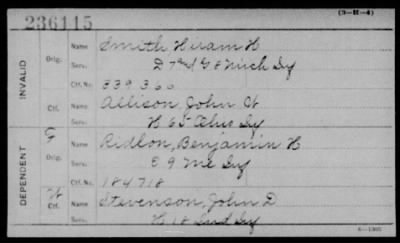 (3-H-4)
236115
INVALID
Orig. Name Smith Hiram H
Serv. D 7 & G 8 Mich Inf
Ctf. No. 339360
Ctf. Name Allison, John
Serv. H 65 Ohio Inf
DEPENDENT
Orig. Name Ridlon, Benjamin H
Serv. E 9 Me Inf
Ctf. No. 184718
Ctf. Name Stevenson, John D
Serv. H 18 Ind Inf